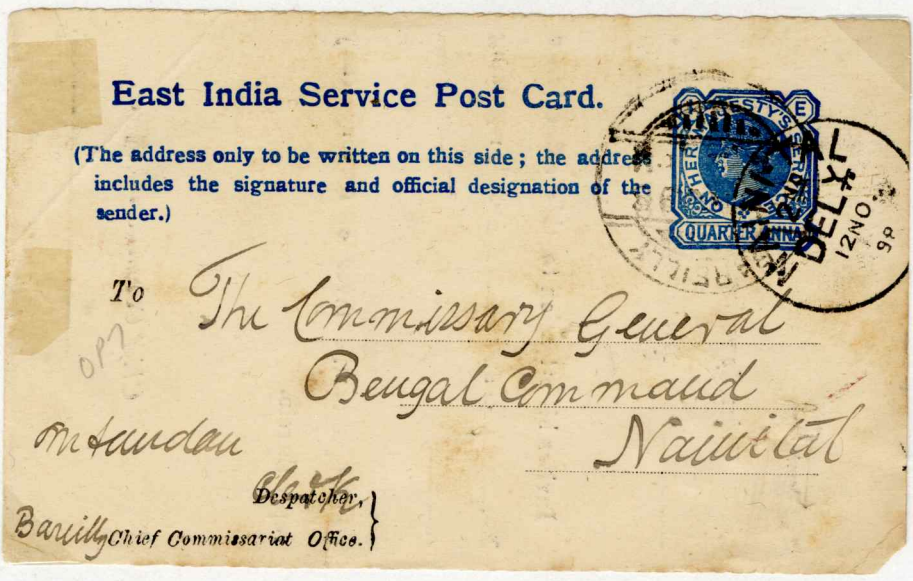 East India Service Post Card.
(The address only to be written on this side; the address
includes the signature and official designation of the
sender.)
ON HER MAJESTY'S SERVICE
E
QUARTER ANNA
BAREILLY
NAINI TAL
DELY
12 NO
98
To
The Commissary General
Bengal Command
Nainital
OP7
Clerk
Despatcher,
Bareilly Chief Commissariat Office.